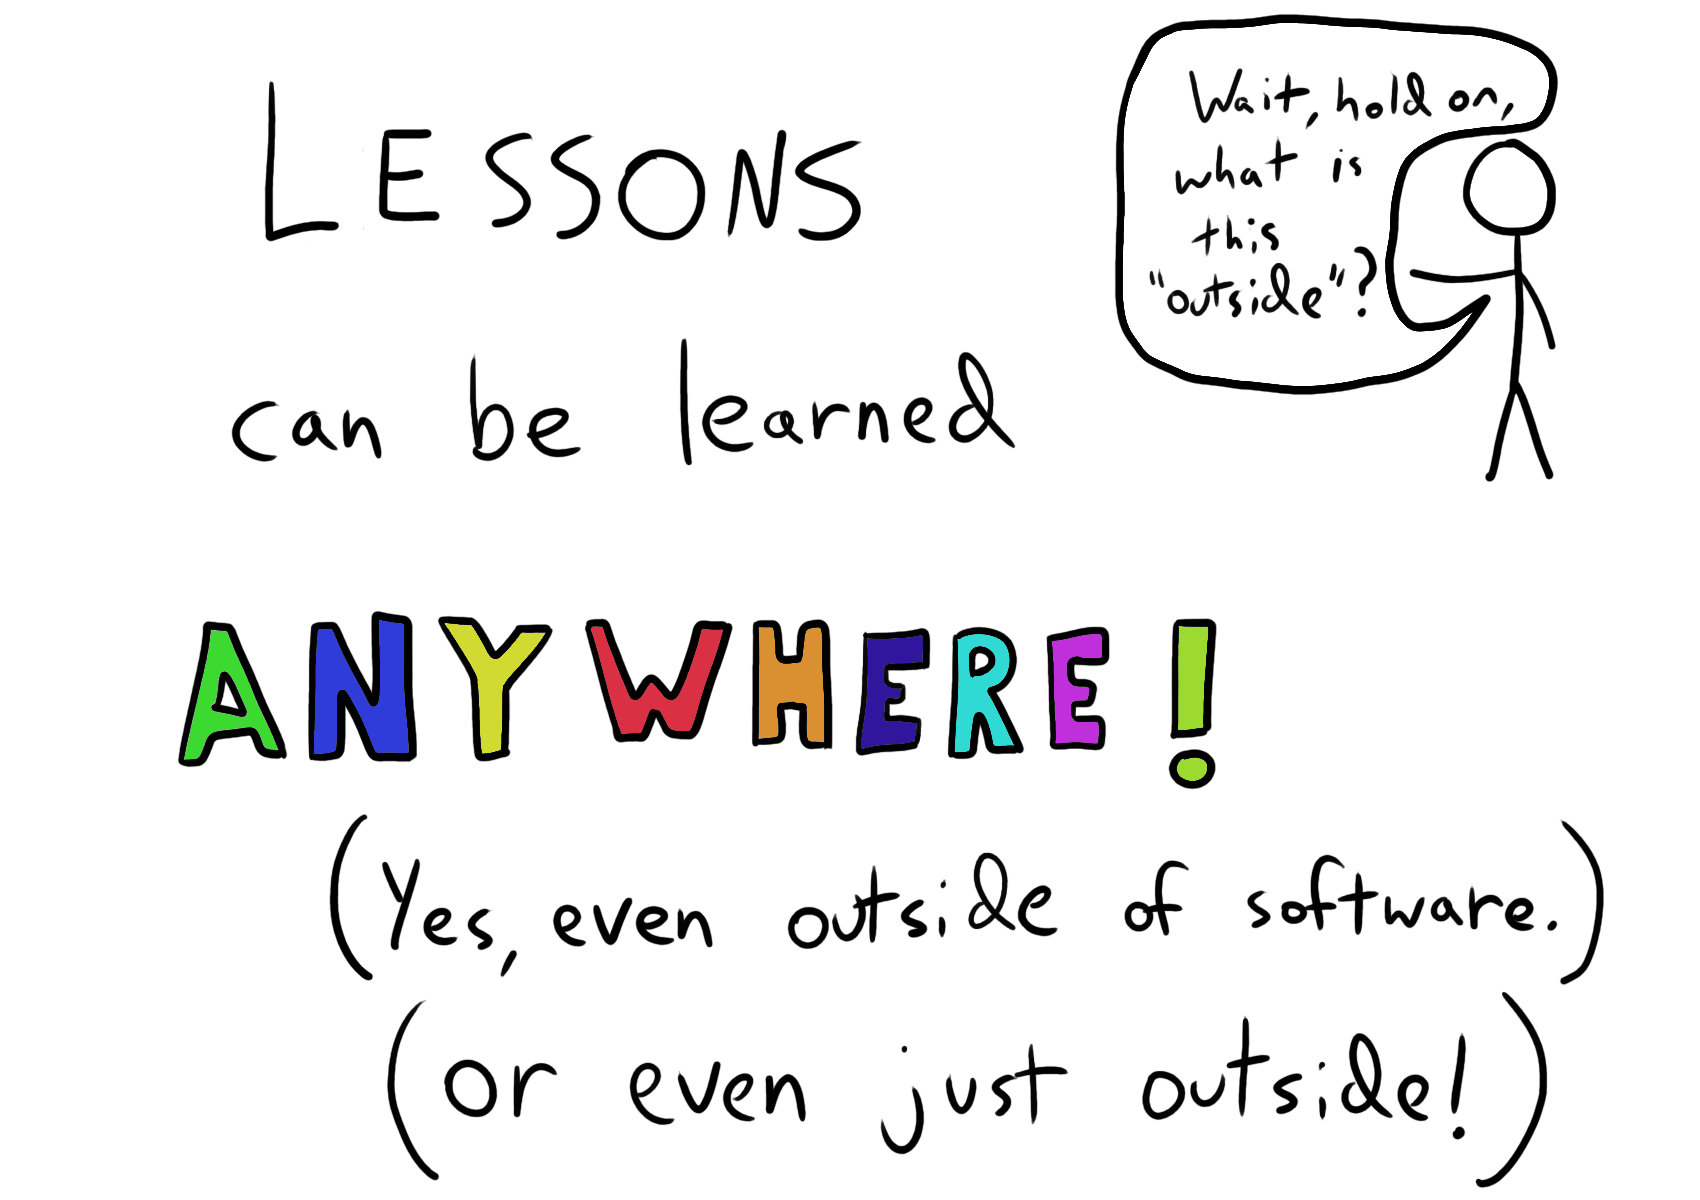 LESSONS
can be learned
ANYWHERE!
(Yes, even outside of software.)
(or even just outside!)
Wait, hold on,
what is
this
"outside"?